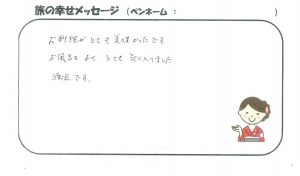 旅の幸せメッセージ（ペンネーム：　　　　　　）
お料理がとても美味かったです
お風呂もよく とても 気に入りました
満点です。